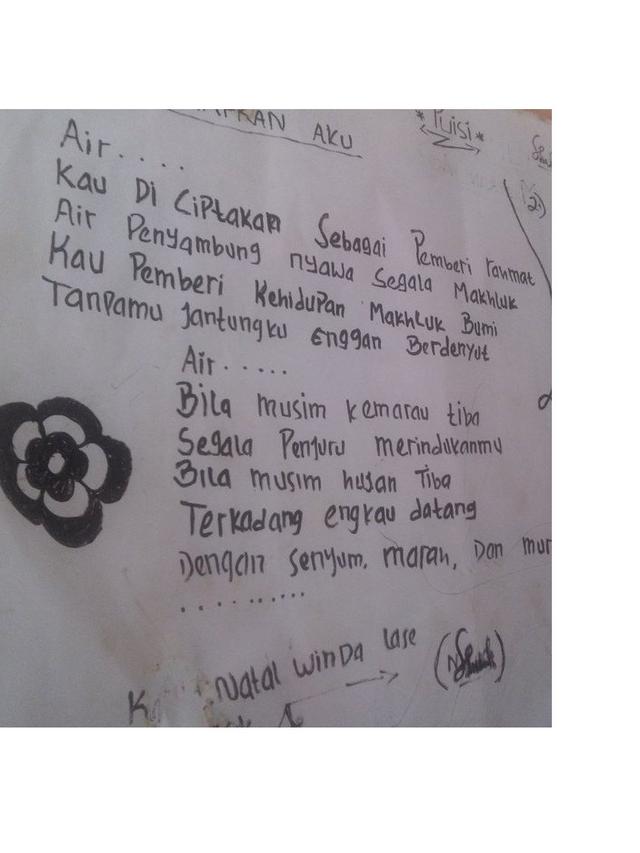 AKU
*Puisi*
2.)
Air....
Kau Di Ciptakan Sebagai Pemberi rahmat
Air Penyambung nyawa Segala Makhluk
Kau Pemberi Kehidupan Makhluk Bumi
Tanpamu Jantungku Enggan Berdenyut
Air.....
Bila musim kemarau tiba
Segala Penjuru merindukanmu
Bila musim hujan Tiba
Terkadang engkau datang
Dengan senyum, marah, Dan mur
..........
Natal Winda Lase